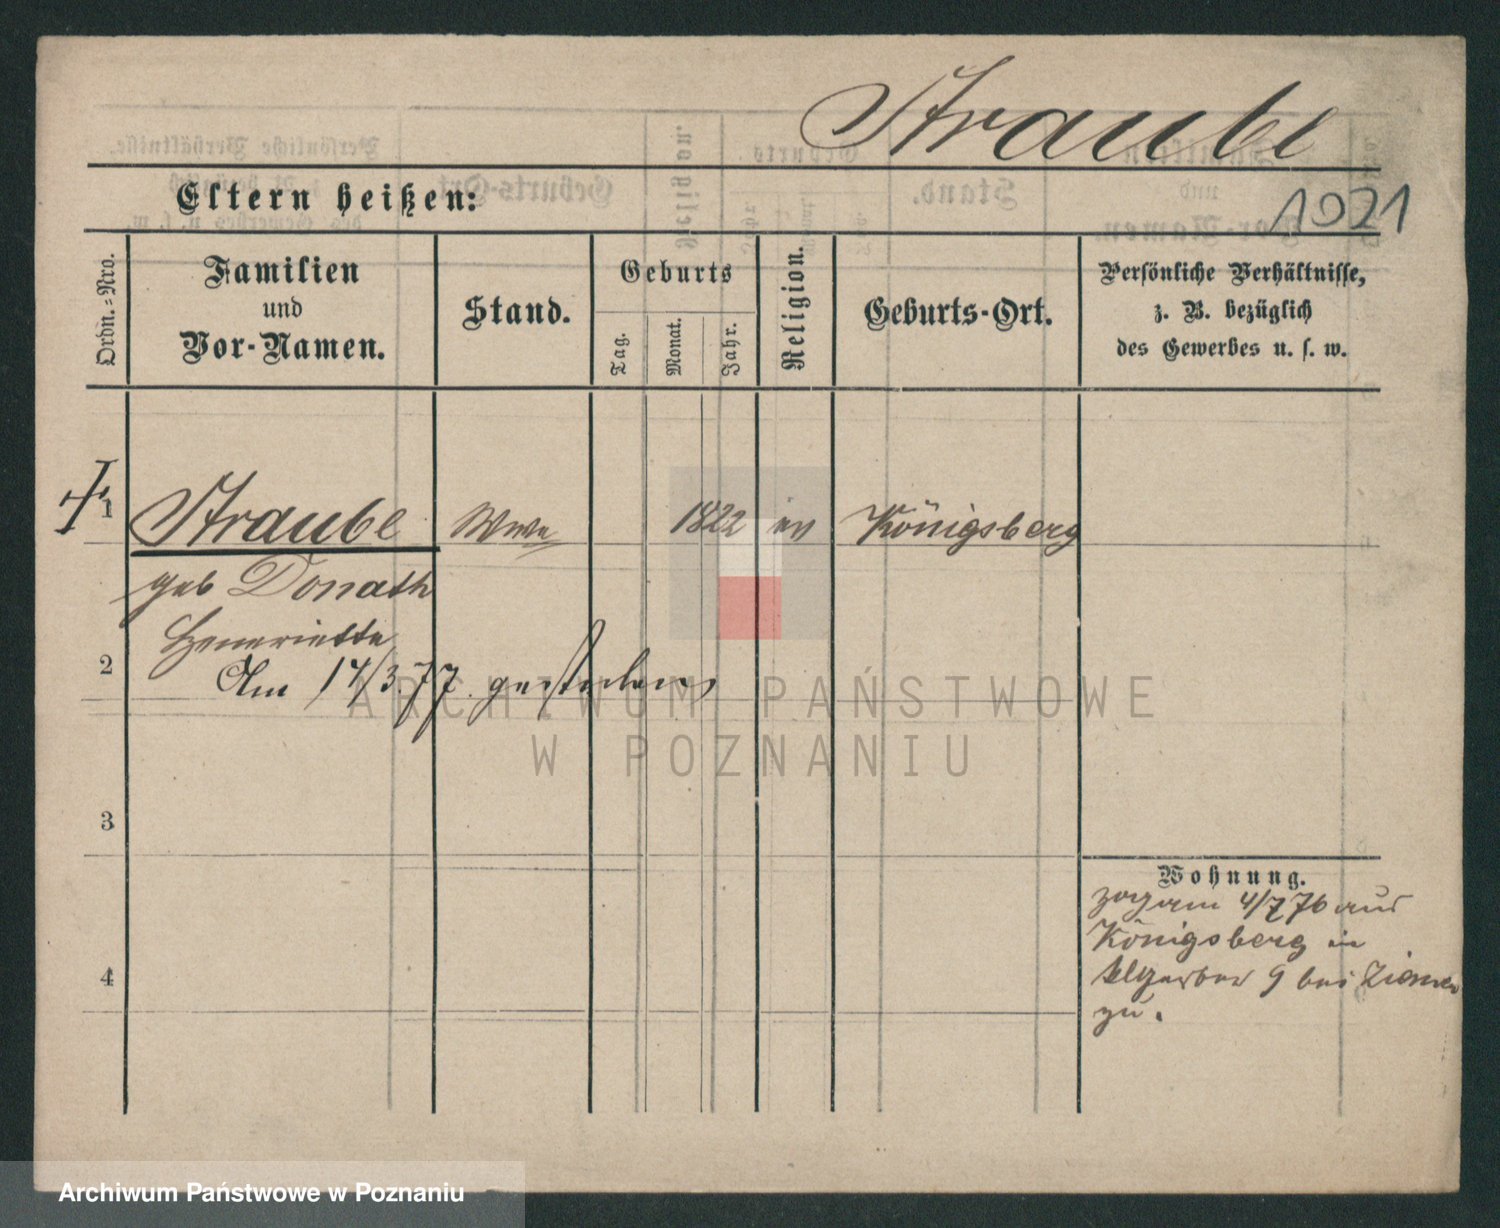 Straube
Eltern heißen:
1021
Ordn.=Nro.
Familien
und
Vor-Namen.
Stand.
Geburts
Tag.
Monat.
Jahr.
Religion.
Geburts-Ort.
Persönliche Verhältnisse,
z. B. bezüglich
des Gewerbes u. s. w.
1
Straube
Wwe
1822
ev
Königsberg
geb Donath
Henriette
2
Am 14/3.77. gestorben
ARCHIWUM PAŃSTWOWE
W POZNANIU
3
Wohnung.
zog am 4/7 76 aus
Königsberg in
9 bei
zu.
4
Archiwum Państwowe w Poznaniu